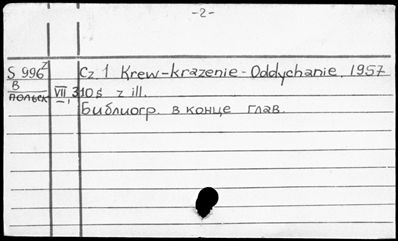 -2-
S 996² Cz. 1 Krew-krazenie-Oddychanie. 1957
В польск VII, 310 s z ill.
Библиогр. в конце глав.